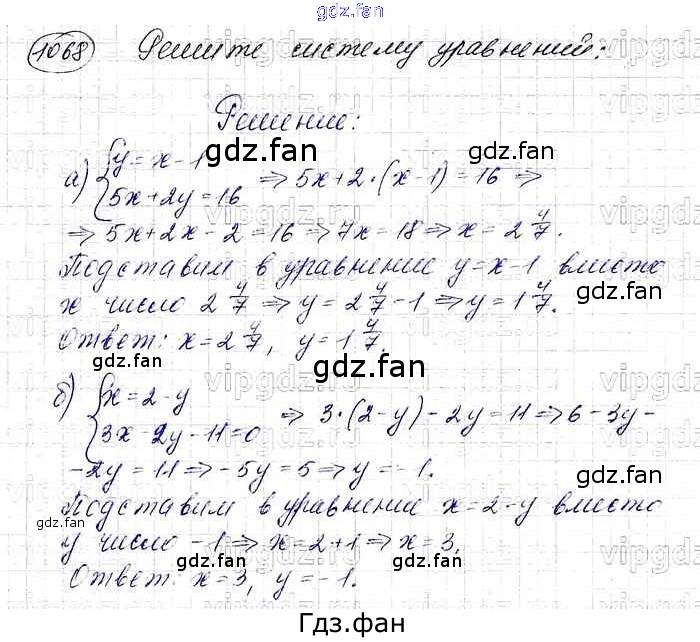 gdz.fan
1068 Решите систему уравнений:
Решение:
а) { y = x - 1
5x + 2y = 16 ⇒ 5x + 2·(x - 1) = 16 ⇒
⇒ 5x + 2x - 2 = 16 ⇒ 7x = 18 ⇒ x = 2 4/7.
Подставим в уравнение y = x - 1 вместо
x число 2 4/7 ⇒ y = 2 4/7 - 1 ⇒ y = 1 4/7.
Ответ: x = 2 4/7, y = 1 4/7.
б) { x = 2 - y
3x - 2y - 11 = 0 ⇒ 3·(2 - y) - 2y = 11 ⇒ 6 - 3y -
- 2y = 11 ⇒ - 5y = 5 ⇒ y = - 1.
Подставим в уравнение x = 2 - y вместо
y число - 1 ⇒ x = 2 + 1 ⇒ x = 3.
Ответ: x = 3, y = - 1.
Гдз.фан